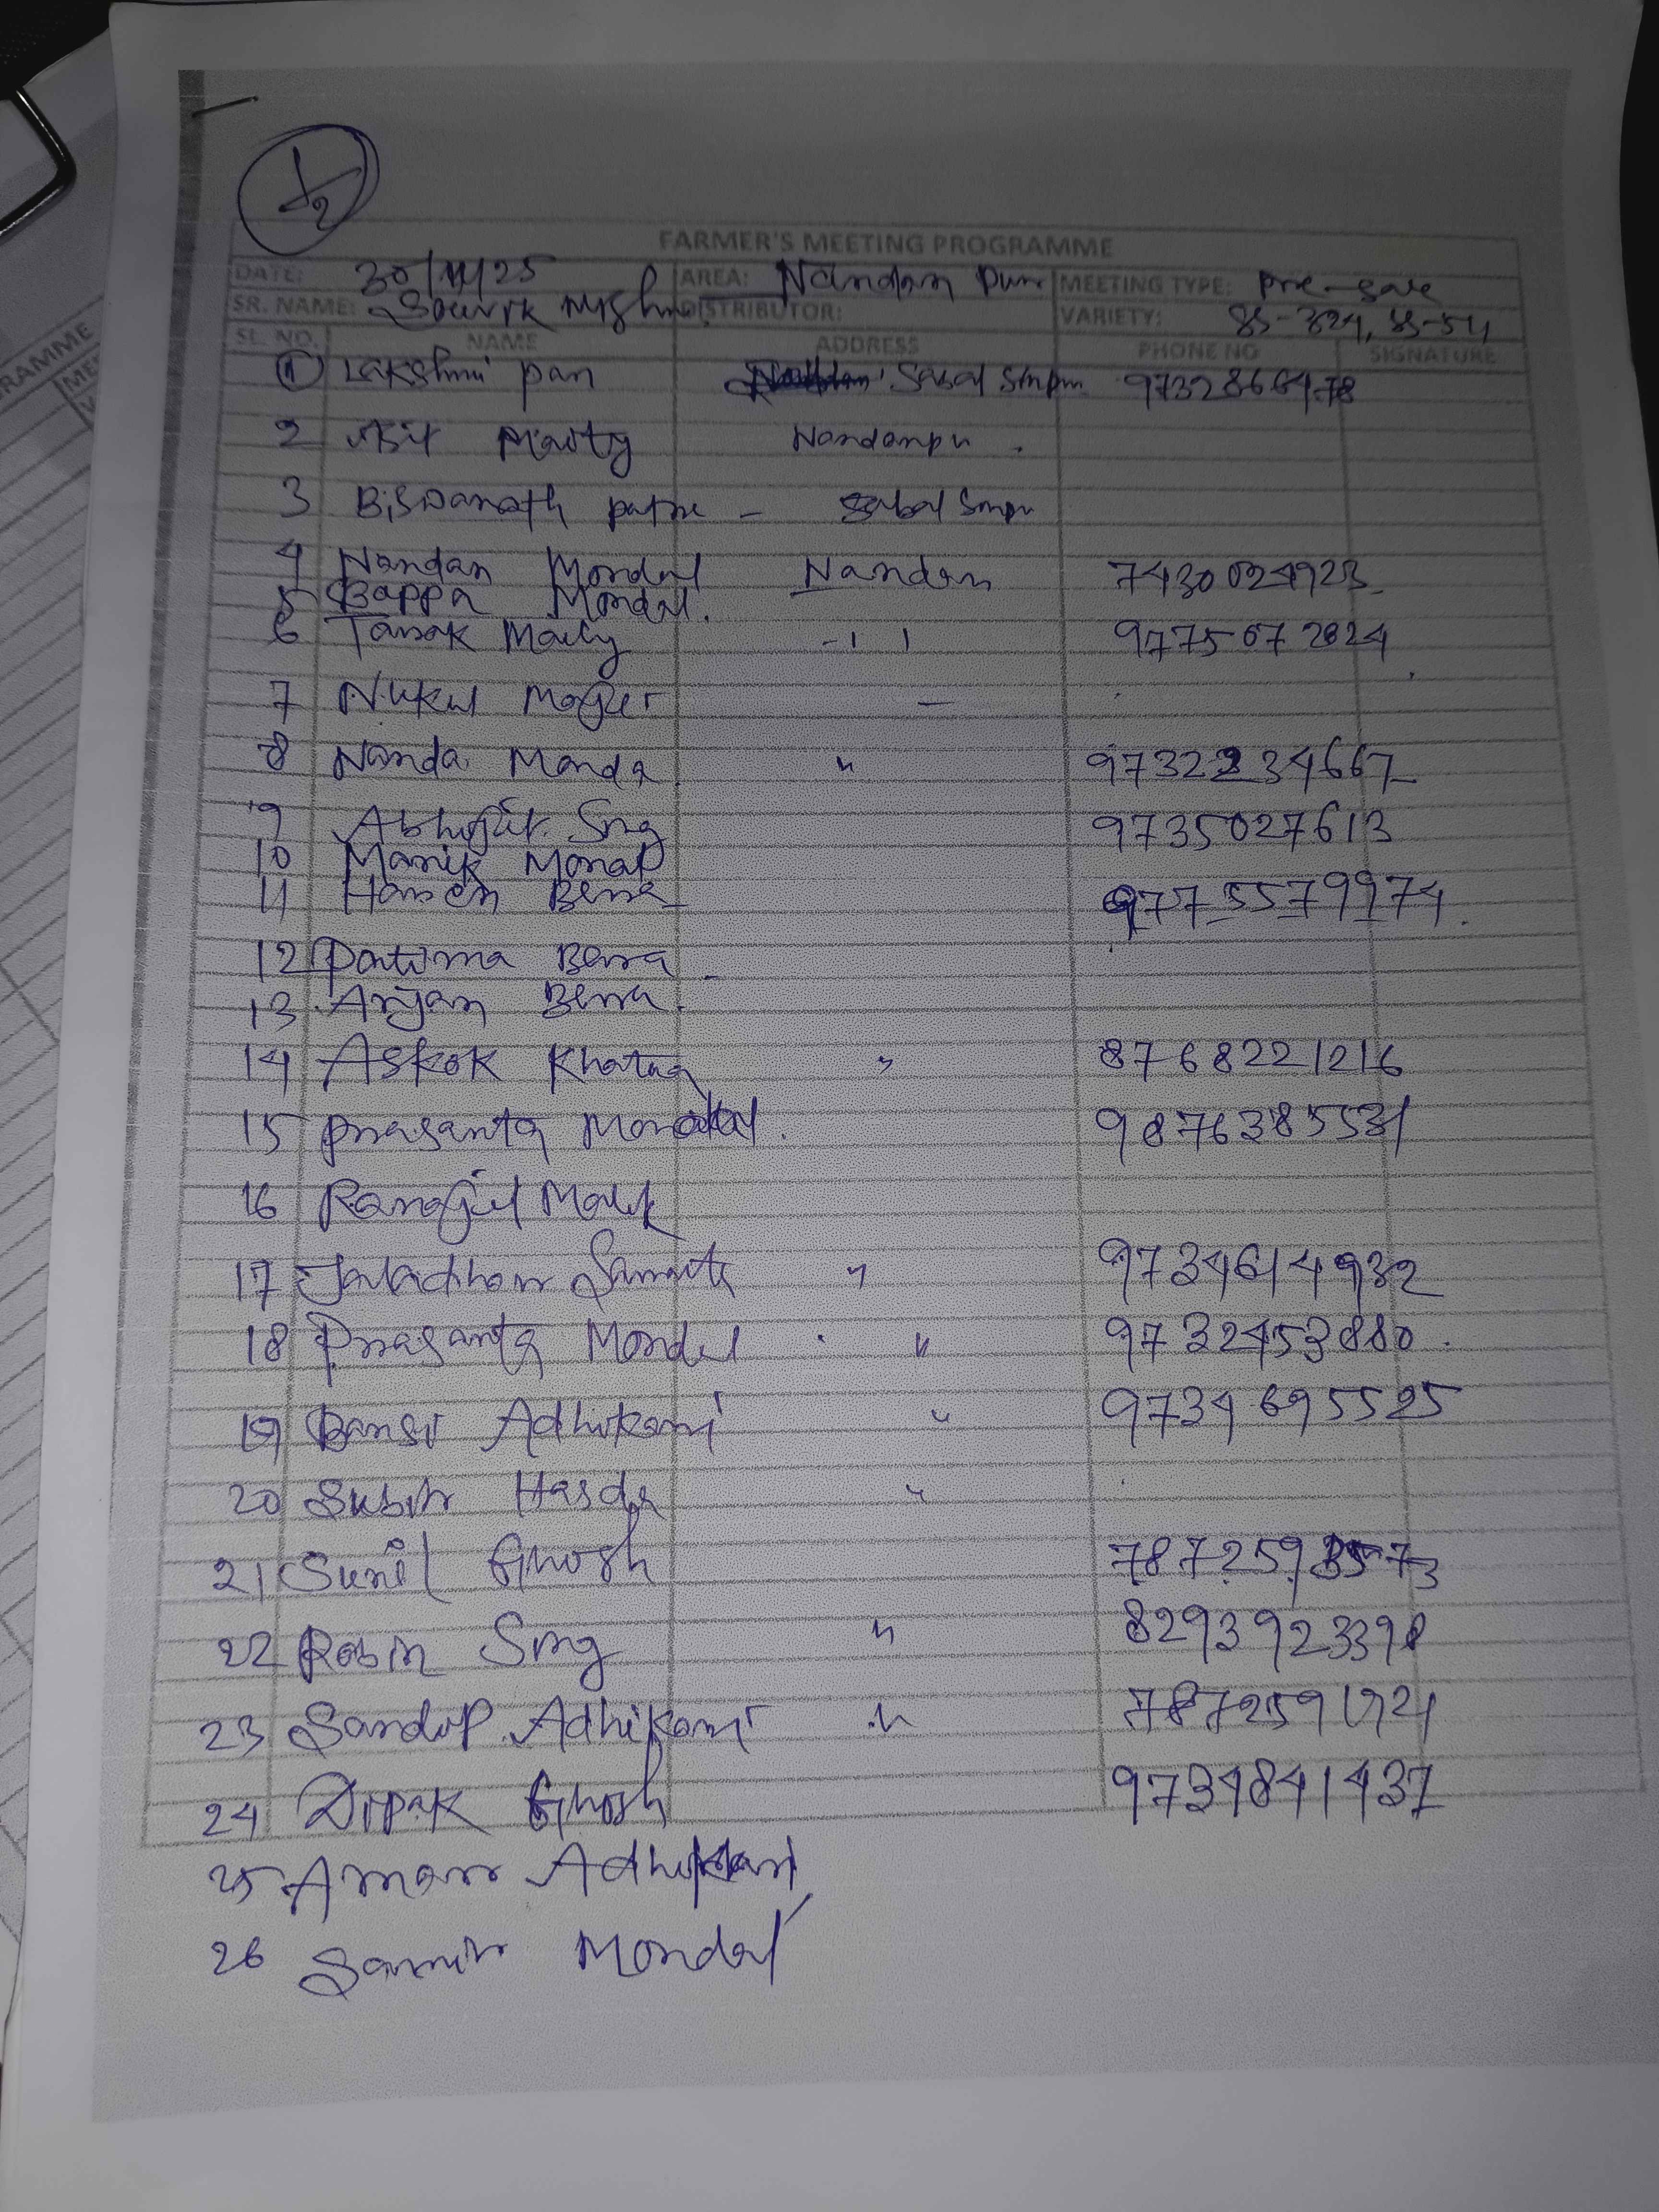 1/2
FARMER'S MEETING PROGRAMME
DATE: 30/11/25 AREA: Nandan Pur MEETING TYPE: Pre-sale
SR. NAME: Souvik DISTRIBUTOR: VARIETY:
SL. NO. NAME ADDRESS PHONE NO SIGNATURE
1 Lakshmi pan
2 Asit Maity Nandanpu
3 Biswanath patra -
4 Nandan Mondal Nandan 7430024923
5 Bappa Mondal.
6 Tarak Maity 9775072824
7 Nukul -
8 Nanda Monda " 9732234667
9 Abhijit Sing 9735027613
10 Manik Mondal
11 Haren Bera 9775579974
12 Pratima Bera
13 Arjan Bera.
14 Askok " 8768221216
15 Prasanta Mondal. 9876385531
16 Ranajit Malik
17 Jaladhar Samanta " 9734614932
18 Prasanta Mondal " 9732453880
19 Bansi Adhikari " 9734695525
20 Subir Hasda "
21 Sunil Ghosh
22 Robin Sing " 8293923398
23 Sandip Adhikari " 7872591921
24 Dipak Ghosh 9734841437
25 Amar Adhikari
26 Samir Mondal
RAMME